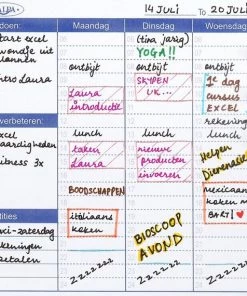 14 JULI To 20 JULI
doen: Maandag Dinsdag Woensdag
start excel
(tira jarig)
YOGA!!
ontbijt
ontbijt
ontbijt
intro Laura
SKYPEN
UK...
1e dag
cursus
EXCEL
Laura
introductie
rekening
verbeteren:
lunch
lunch
lunch
excel
vaardigheden
fitness 3x
taken
Laura
nieuwe
producten
invoeren
Helpen
Dierenasiel
BOODSCHAPPEN
mexicaans
koken m
BART!
italiaans
koken
BIOSCOOP
AVOND
vinci-zaterdag
rekeningen
betalen
zzzzzzz
zzzzzz
zzzzzz